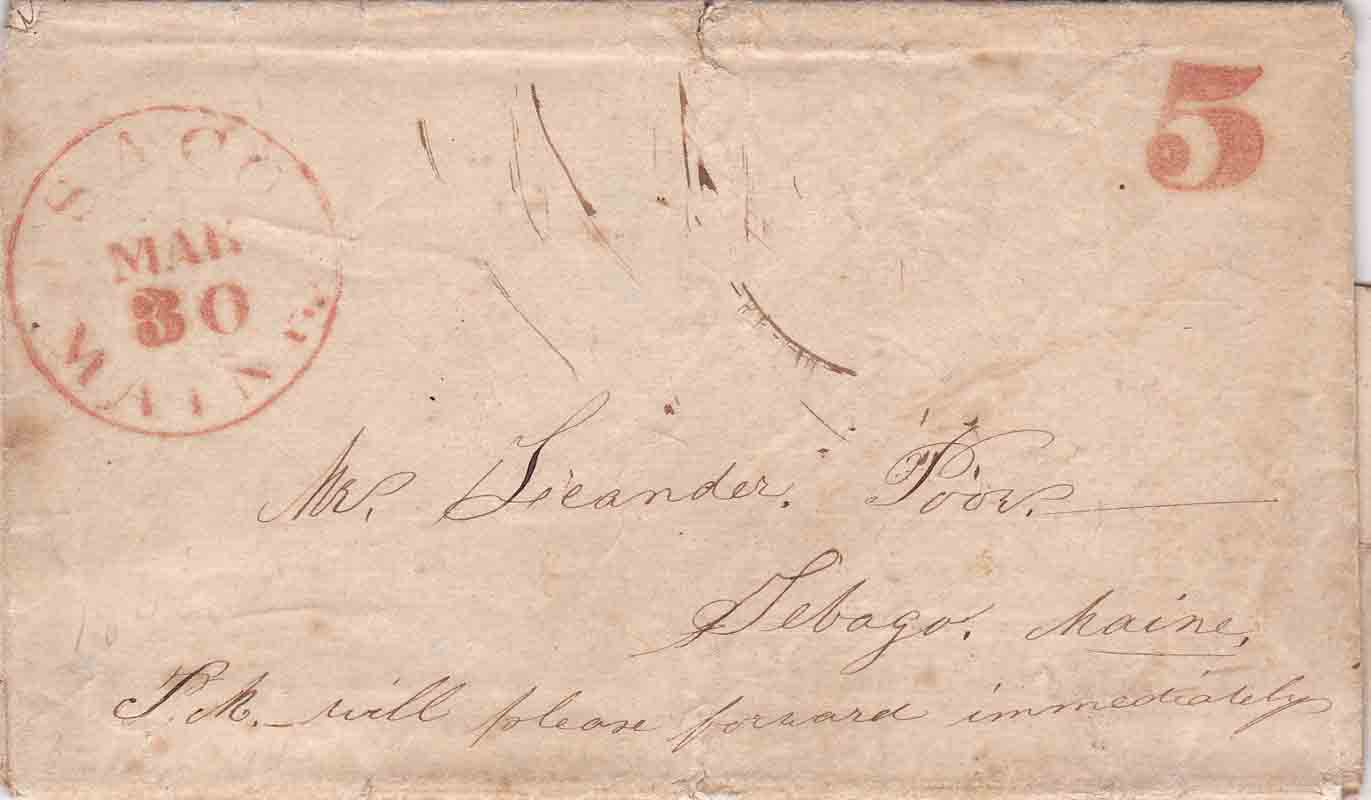 SACO
MAR
30
MAINE
5
Mr. Leander. Poor.
Sebago. Maine.
P.M. will please forward immediately